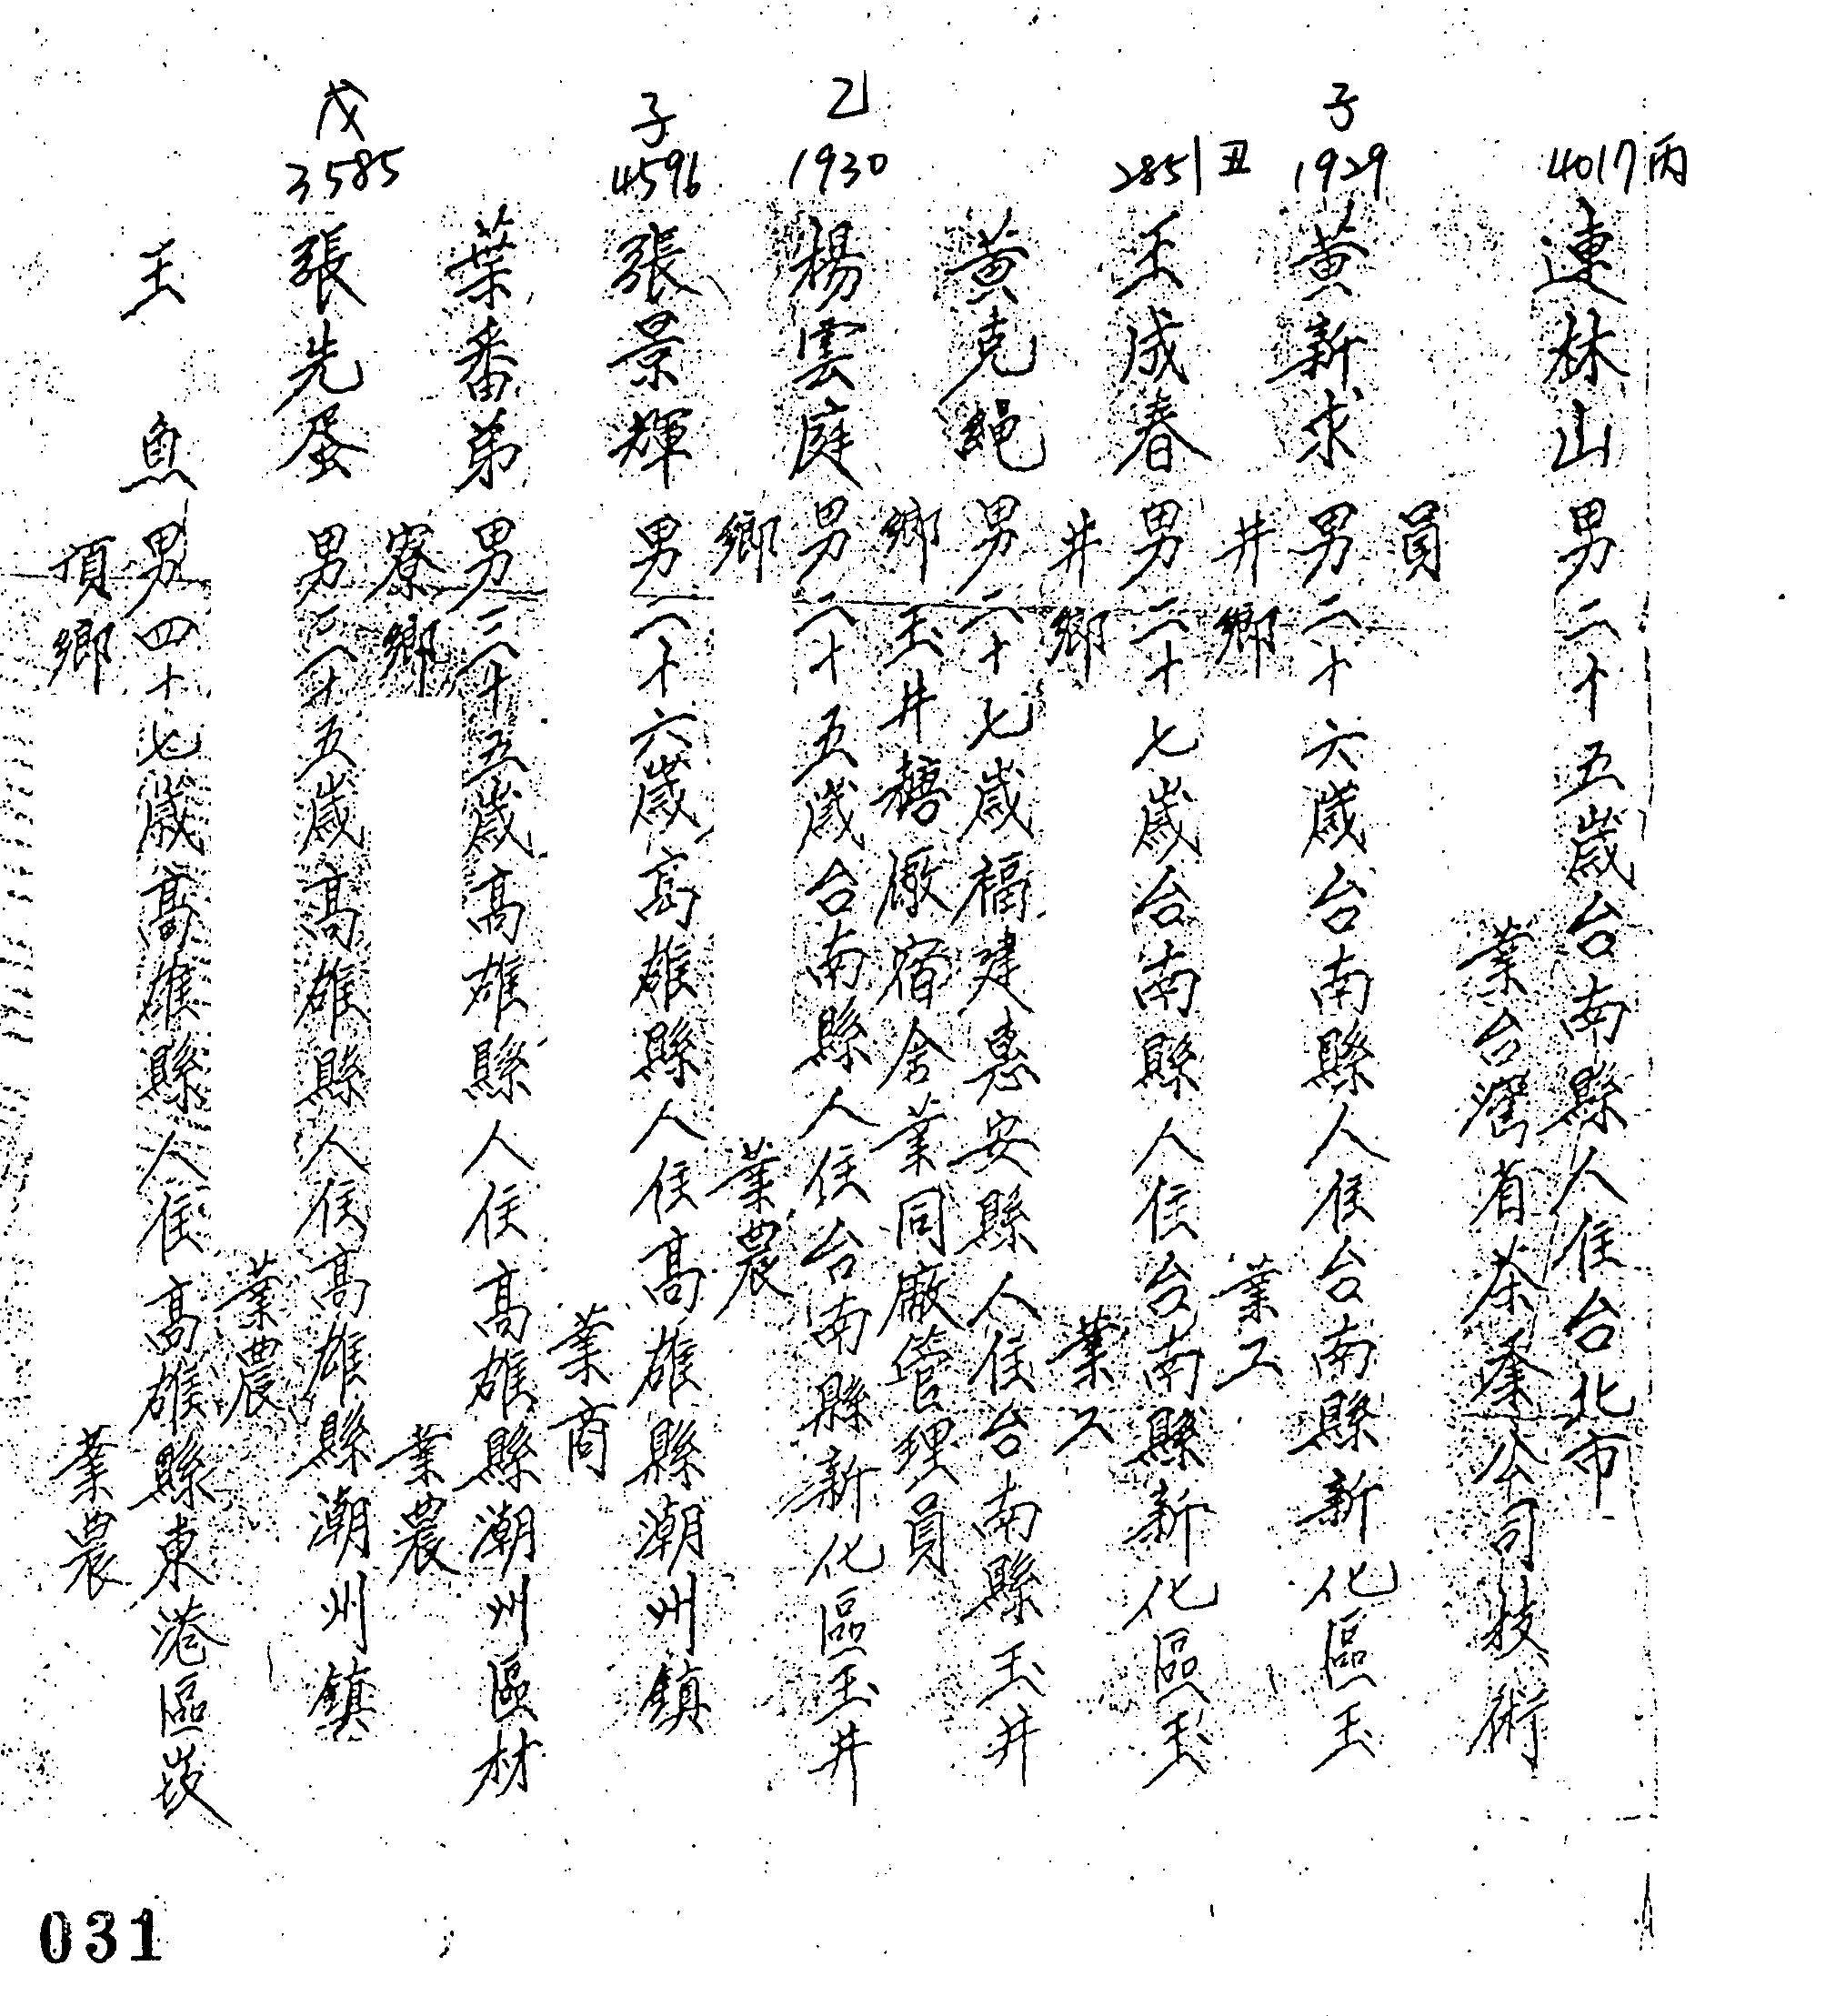 4017丙
連林山 男二十五歲台南縣人住台北市
業台灣省茶業公司技術
員
子
1929
黃新求 男二十六歲台南縣人住台南縣新化區玉
井鄉 業工
2851丑
王成春 男二十七歲台南縣人住台南縣新化區玉
井鄉 業工
黃克繩 男二十七歲福建惠安縣人住台南縣玉井
鄉玉井糖廠宿舍業同廠管理員
乙
1930
楊雲庭 男二十五歲台南縣人住台南縣新化區玉井
鄉 業農
子
4596
張景輝 男二十六歲高雄縣人住高雄縣潮州鎮
業商
葉番弟 男三十五歲高雄縣人住高雄縣潮州區林
寮鄉 業農
戊
3585
張先蛋 男三十五歲高雄縣人住高雄縣潮州鎮
業農
王 魚 男四十七歲高雄縣人住高雄縣東港區崁
頂鄉 業農
031